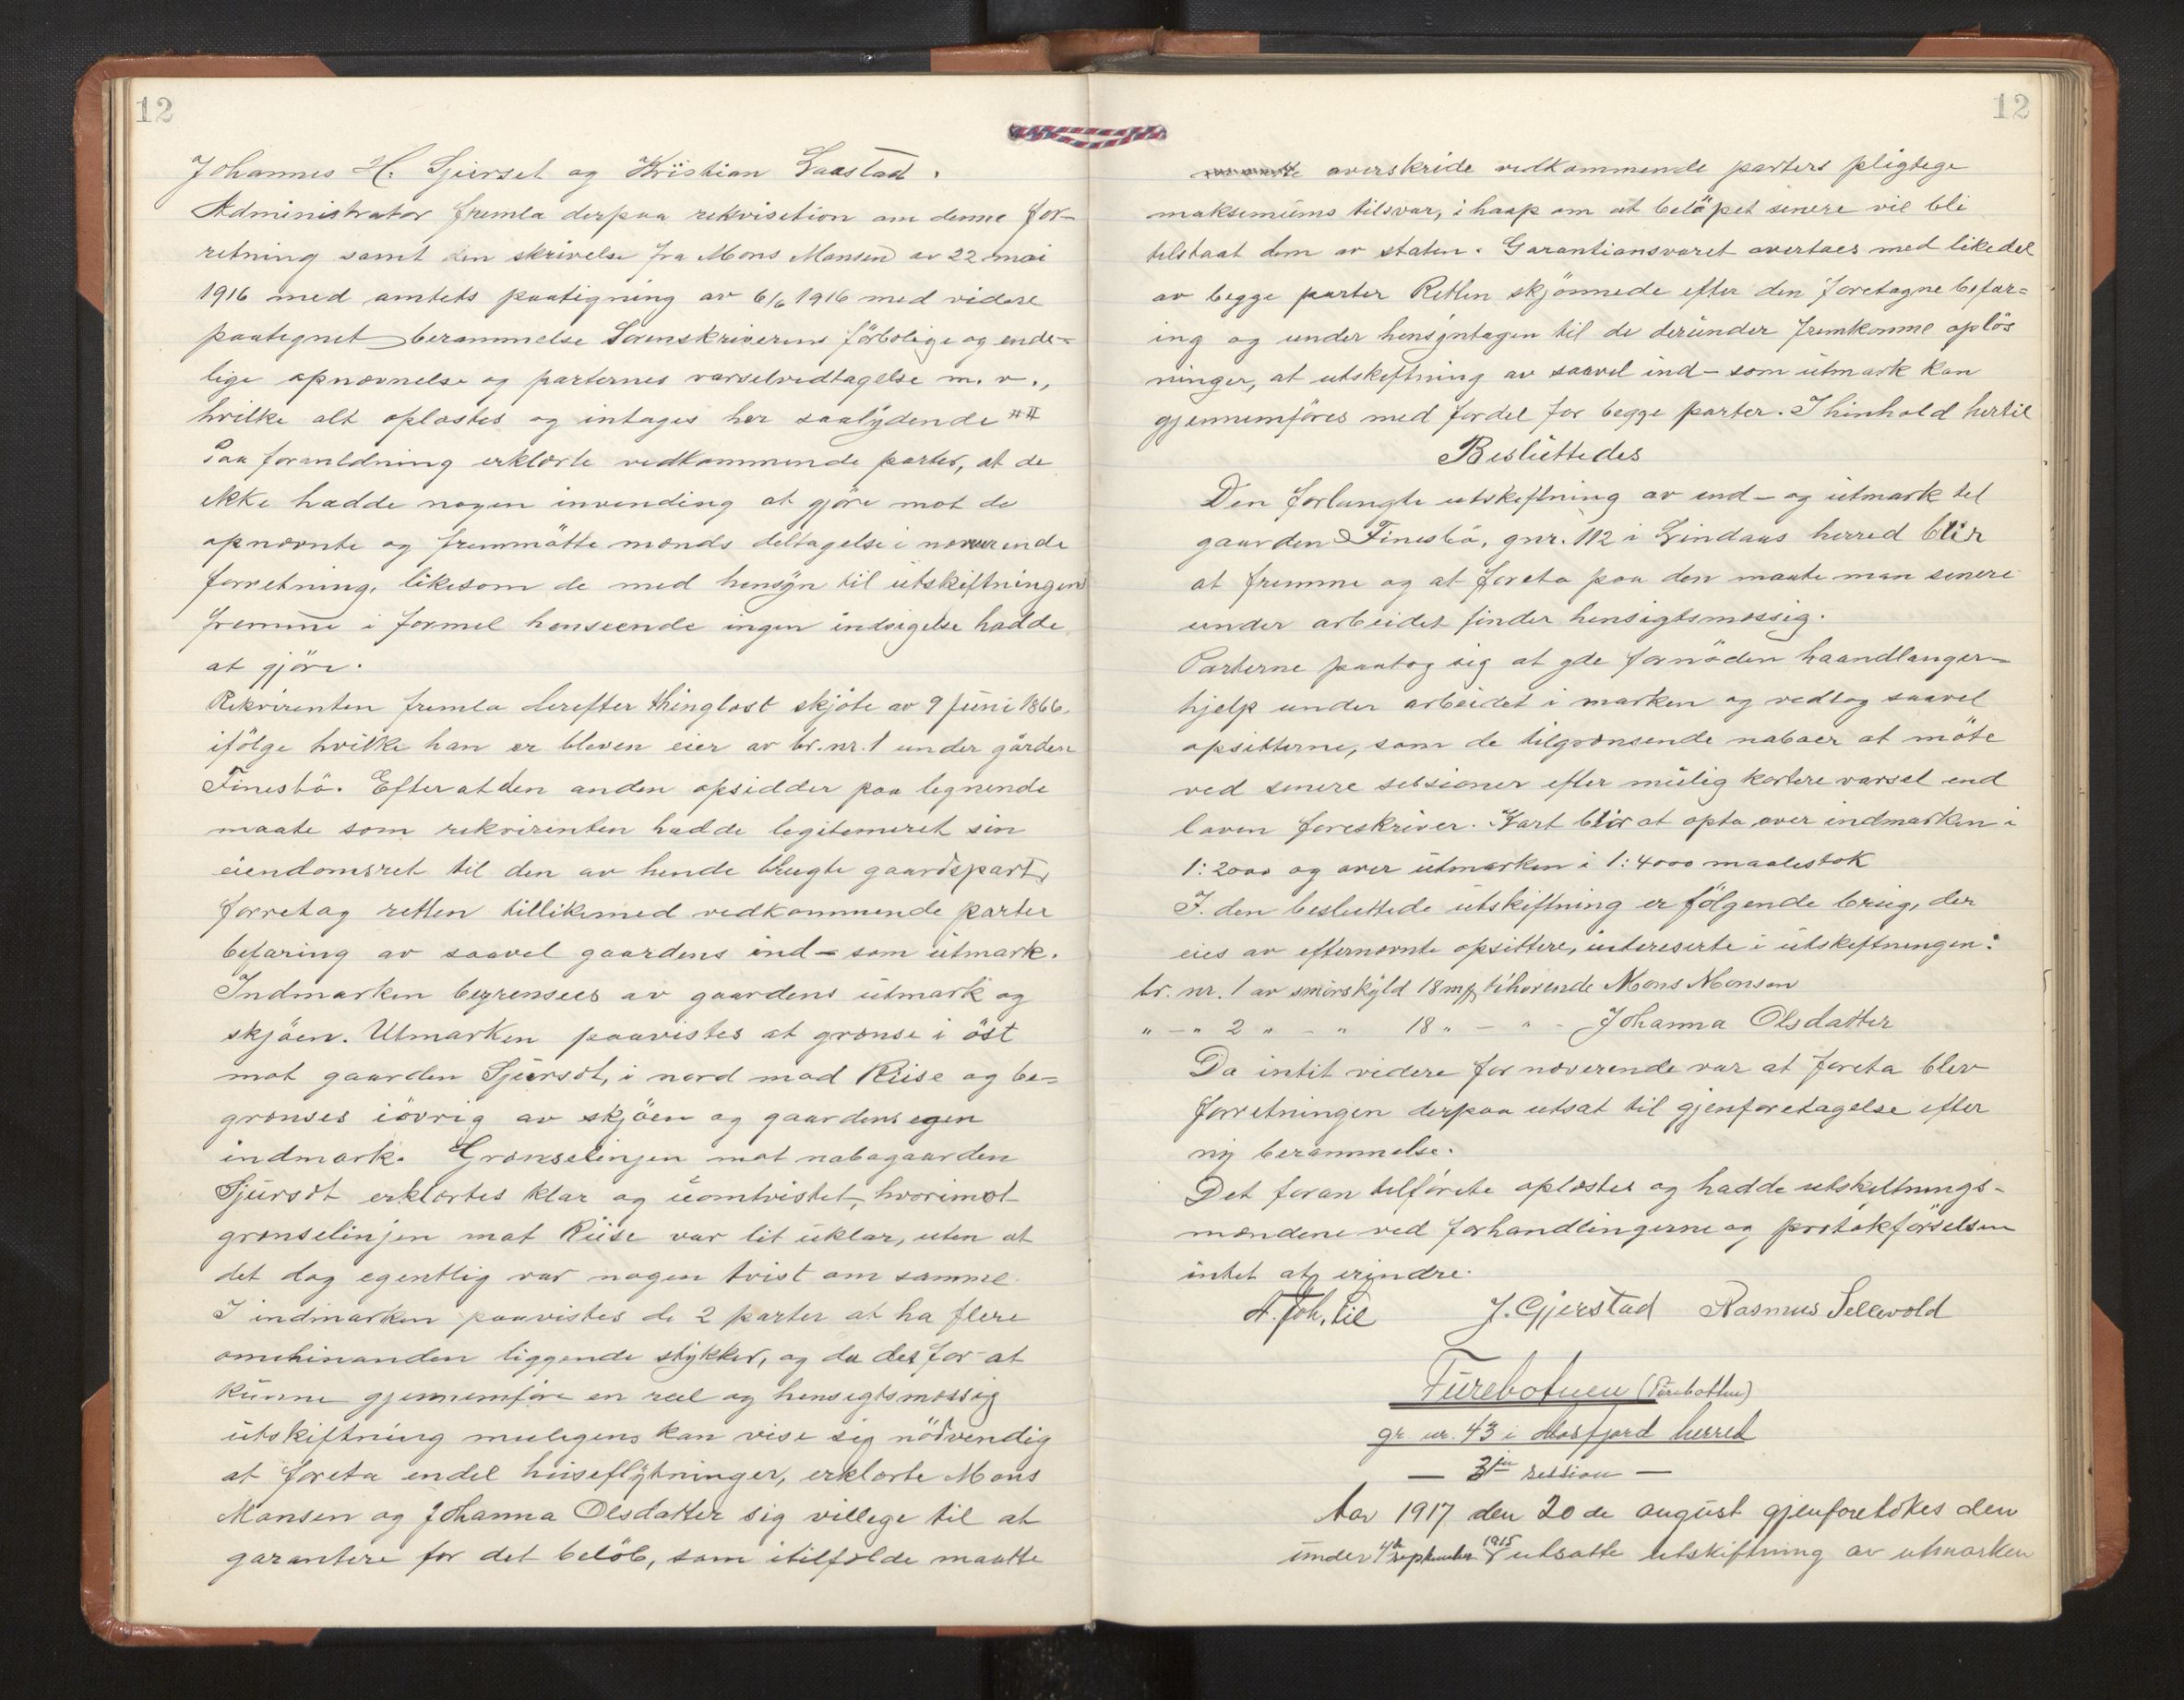 12
Johannes H. Sjurset og Kristian Laastad.
Administrator fremla derpaa rekvisition om denne for-
retning samt den skrivelse fra Mons Monsen av 22 mai
1916 med amtets paategning av 6/6 1916 med videre
paategnet berammelse Sorenskriverens förbolige og ende-
lige opnævnelse og parternes varselvedtagelse m. v.,
hvilke alt oplæstes og intages her saalydende ##
Paa foranledning erklærte vedkommende parter, at de
ikke hadde nogen invending at gjöre mot de
opnævnte og fremmötte mænds deltagelse i nærværende
forretning, likesom de med hensyn til utskiftningens
fremme i formel henseende ingen indsigelse hadde
at gjöre.
Rekvirenten fremla derefter thinglæst skjöte av 9 juni 1866,
ifölge hvilke han er bleven eier av br. nr. 1 under gården
Finesbö. Efter at den anden opsidder paa legnende
maate som rekvirenten hadde legitemeret sin
eiendomsret til den av hende brugte gaardspart,
forretog retten tillikemed vedkommende parter
befaring av saavel gaardens ind- som utmark.
Indmarken begrenses av gaardens utmark og
skjöen. Utmarken paavistes at grænse i öst
mot gaarden Sjursæt, i nord mod Riise og be-
grænses iövrig av skjöen og gaardens egen
indmark. Grænselinjen mot nabogaarden
Sjursæt erklærtes klar og uomtvistet, hvorimot
grænselinjen mot Riise var lit uklar, uten at
det dog egentlig var nogen tvist om samme.
I indmarken paavistes de 2 parter at ha flere
omehinanden liggende stykker, og da det for at
kunne gjennemföre en reel og hensegtsmæssig
utskiftning muligens kan vise sig nödvendig
at foreta endel huseflytninger, erklærte Mons
Monsen og Johanna Olsdatter sig villege til at
garantere for det belöb, som itilfælde maatte
12
overskride vedkommende parters pligtege
maksemums tilsvar, i haap om at belöpet senere vil bli
tilstaat dem av staten. Garantiansvaret overtaes med likedel
av begge parter Retten skjönnede efter den foretagne befar-
ing og under hensyntagen til de derunder fremkomne oplös
ninger, at utskiftning av saavel ind- som utmark kan
gjennemföres med fordel for begge parter. I hinhold hertil
Besluttedes
Den forlangte utskiftning av ind- og utmark til
gaarden Finesbö, gnr. 112 i Lindaas herred blir
at fremme og at foreta paa den maate man senere
under arbeidet finder hensigtsmæssig.
Parterne paatog sig at yde fornöden haandlanger-
hjelp under arbeidet i marken og vedtog saavel
opsitterne, som de tilgrænsende naboer at möte
ved senere sessioner efter mulig kortere varsel end
loven foreskriver. Kart blir at opta over indmarken i
1:2000 og over utmarken i 1:4000 maalestok
I. den besluttede utskiftning er fölgende brug, der
eies av efternævnte opsittere, intereserte i utskeftningen:
br. nr. 1 av smörskyld 18 mrk tihörende Mons Monsen
" - " 2 " - " 18 " - " - Johanna Olsdatter
Da intit videre for nærværende var at foreta blev
forretningen derpaa utsat til gjenforetagelse efter
ny berammelse.
Det foran tilförte oplæstes og hadde utskiftnings-
mændene ved forhandlingerne og protokförselsen
intet at erindre.
A. Joh, Lie J. Gjerstad Rasmus Sellevold
Furebotnen (Furebotten)
gr nr. 43 i Masfjord herred
— 3die session —
Aar 1917 den 20 de august gjenforetokes den
under 4de september 1915 utsatte utskiftning av utmarken